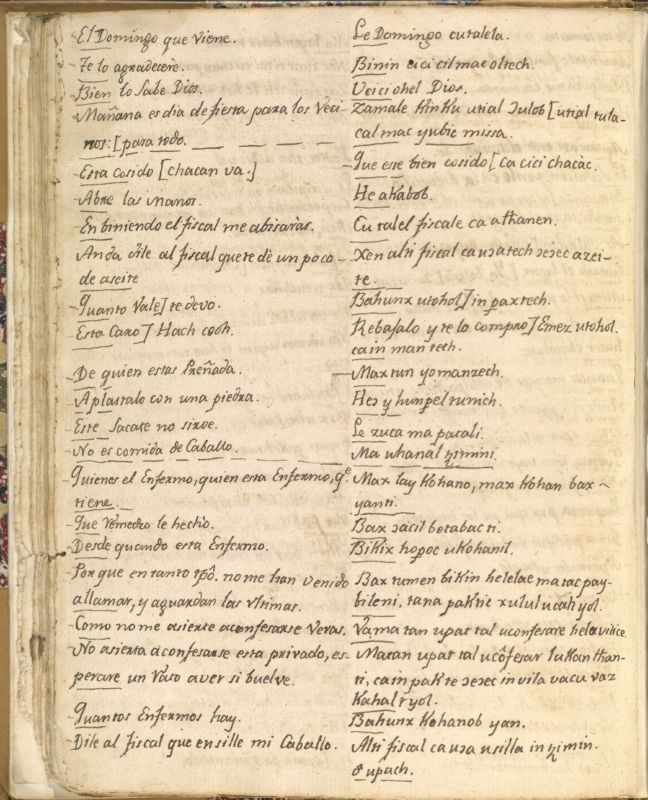 El Domingo que viene.
Te lo agradecere.
Bien lo sabe Dios.
Mañana es dia de fiesta para los Veci-
nos: [para todo.
Esta cosido [chacan va.]
Abre las manos.
En biniendo el fiscal me abisaràs.
Anda dile al fiscal que te dè un poco
de aseite
Quanto Vale] te devo.
Esta Caro] Hach cooh.
De quien estas Preñada.
Aplastalo con una piedra.
Este Sacate no sirve.
No es comida de Caballo.
Quien es el Enfermo, quien esta Enfermo, q.e
tiene.
Que Remedio le hecho.
Desde quando esta Enfermo.
Por que en tanto tpō. no me han venido
allamar, y aguardan las Vltimas.
Como no me asiente aconfesarse Veras.
No asienta aconfesarse esta privado, es-
perare un Rato aver si buelve.
Quantos Enfermos hay.
Dile al fiscal que ensille mi Caballo.
Le Domingo cutalela.
Binin cici cilmac oltech.
Vcici ohel Dios.
Zamale KinKu utial Ɔulob [utial tula-
cal mac yubic missa.
Que este bien cosido [ca cici chacàc.
He aKabob.
Cu talel fiscale ca athanen.
Xen alti fiscal ca uɔatech ɔeɔec azei-
te.
Bahunx utohol] in pax tech.
Rebajalo y te lo compro] Emez utohol.
cain man tech.
Max tun yomanzech.
Hez y hunppel tunich.
Le zuca ma patali.
Ma uhanal tzimini.
Max lay Kohano, max Kohan bax
yanti.
Bax ɔacil betabac ti.
BiKix hoppoc uKohanil.
Bax tumen biKin helelae matac pay-
bileni, tana paKtic xulul ucah yol.
Vama tan upat tal uconfesare hela uilice.
Matan upat tal ucōfesar luKan than-
ti, cain paKte ɔeɔec in vila vacu vaz
Kahal tyol.
Bahunx Kohanob yan.
Alti fiscal ca uɔa usilla in tzimin.
upach.